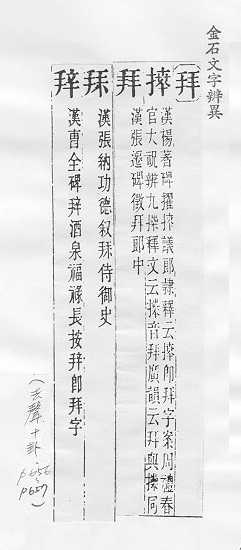 金石文字辨異
拜
𢷎
漢楊著碑擢𢷎議郎隸釋云𢷎即拜字案周禮春
官大祝辨九𢷎釋文云𢷎音拜廣韻云拜與𢷎同
拜
漢張遷碑徵拜郎中
漢張納功德叙侍御史
漢曹全碑酒泉福祿長按即拜字
(去聲十卦,
p.656~
p.657)